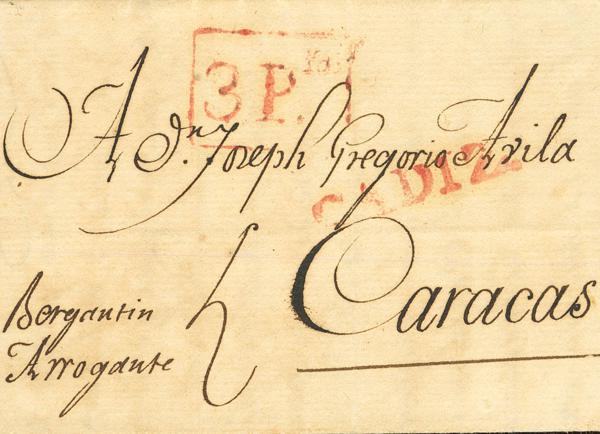 3 P.
A dn. Joseph Gregorio Avila
CADIZ
Caracas
Bergantin
Arrogante